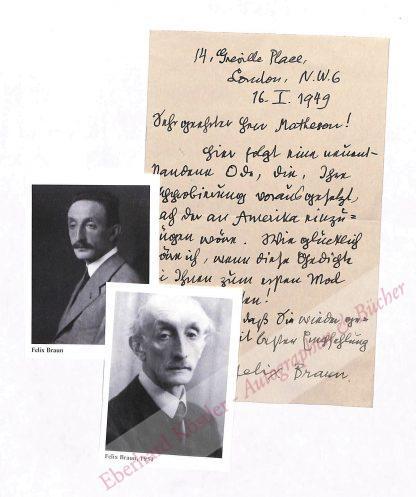 14, Greville Place,
London, N.W.6
16. I. 1949
Sehr geehrter Herr Matheson!
Hier folgt eine neuent-
standene Ode, die, Ihre
vorausgesetzt,
nach der an Amerika einzu=
fügen wäre. Wie glücklich
wäre ich, wenn diese Gedichte
bei Ihnen zum ersten Mal
daß Sie wieder
mit bester Empfehlung
Felix Braun.
Felix Braun
Felix Braun, 1954
Eberhard Köstler Autographen & Bücher